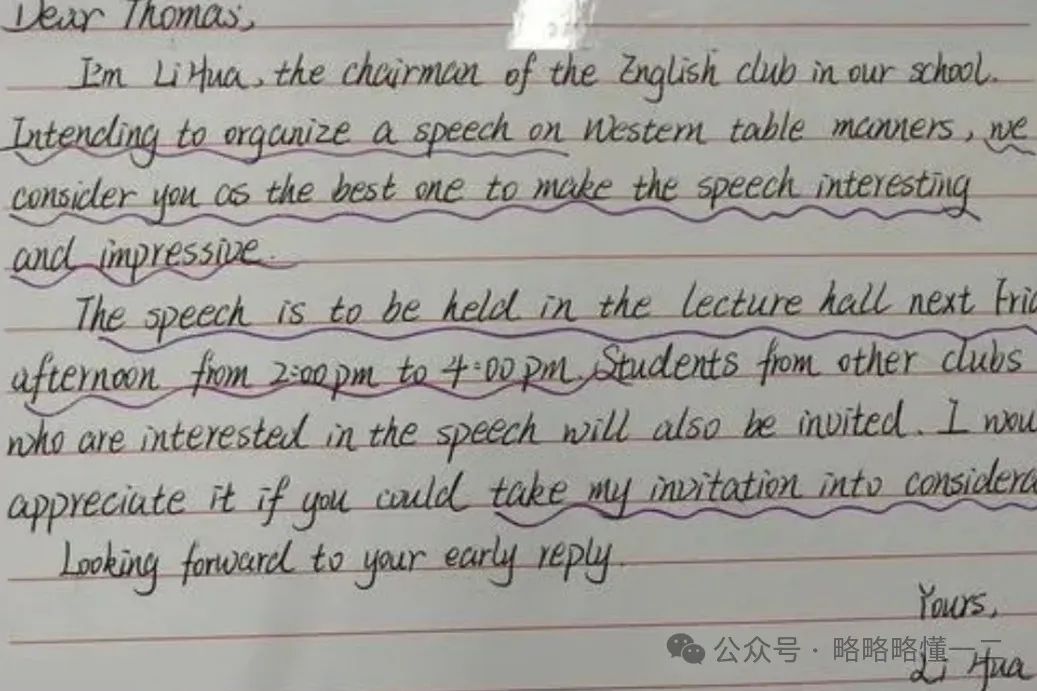 Dear Thomas,
I'm Li Hua, the chairman of the English club in our school.
Intending to organize a speech on Western table manners, we
consider you as the best one to make the speech interesting
and impressive.
The speech is to be held in the lecture hall next Frid
afternoon from 2:00pm to 4:00pm. Students from other clubs
who are interested in the speech will also be invited. I wou
appreciate it if you could take my invitation into considera
Looking forward to your early reply.
Yours,
公众号 · 略略略懂一二
Li Hua